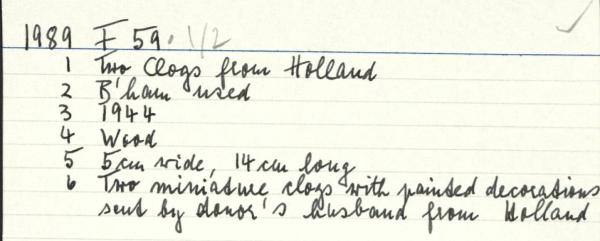 1989 F 59. 1/2
1 Two Clogs from Holland
2 B'ham used
3 1944
4 Wood
5 5cm wide, 14cm long
6 Two miniature clogs with painted decorations
sent by donor's husband from Holland